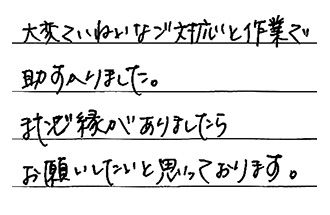 大変ていねいなご対応と作業で
助かりました。
またご縁がありましたら
お願いしたいと思っております。